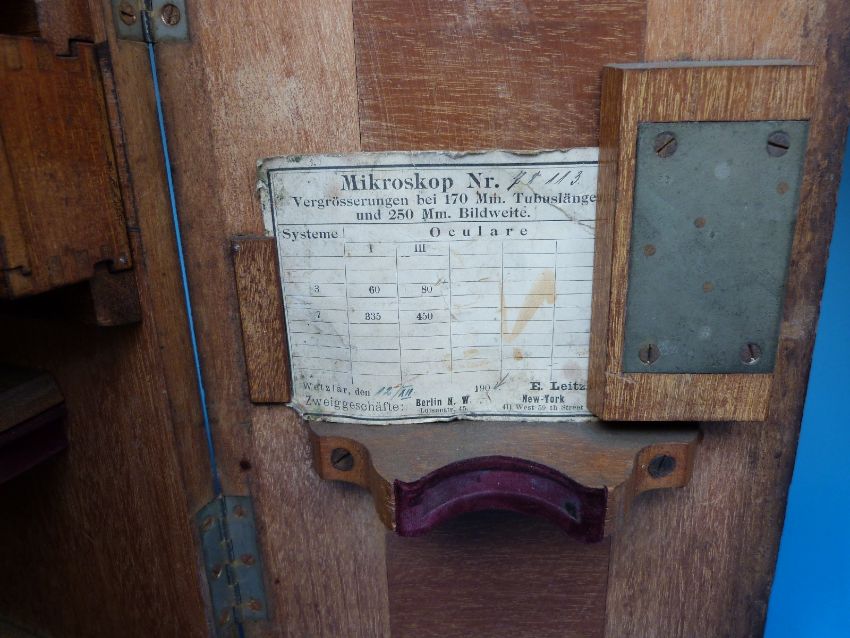 Mikroskop Nr. 78113
Vergrösserungen bei 170 Mm. Tubuslänge
und 250 Mm. Bildweite.
Systeme Oculare
I III
3 60 80
7 335 450
Wetzlar, den 12/XII 190 E. Leitz
Zweiggeschäfte: Berlin N. W. New-York
Luisenstr. 45 411 West 59 th Street